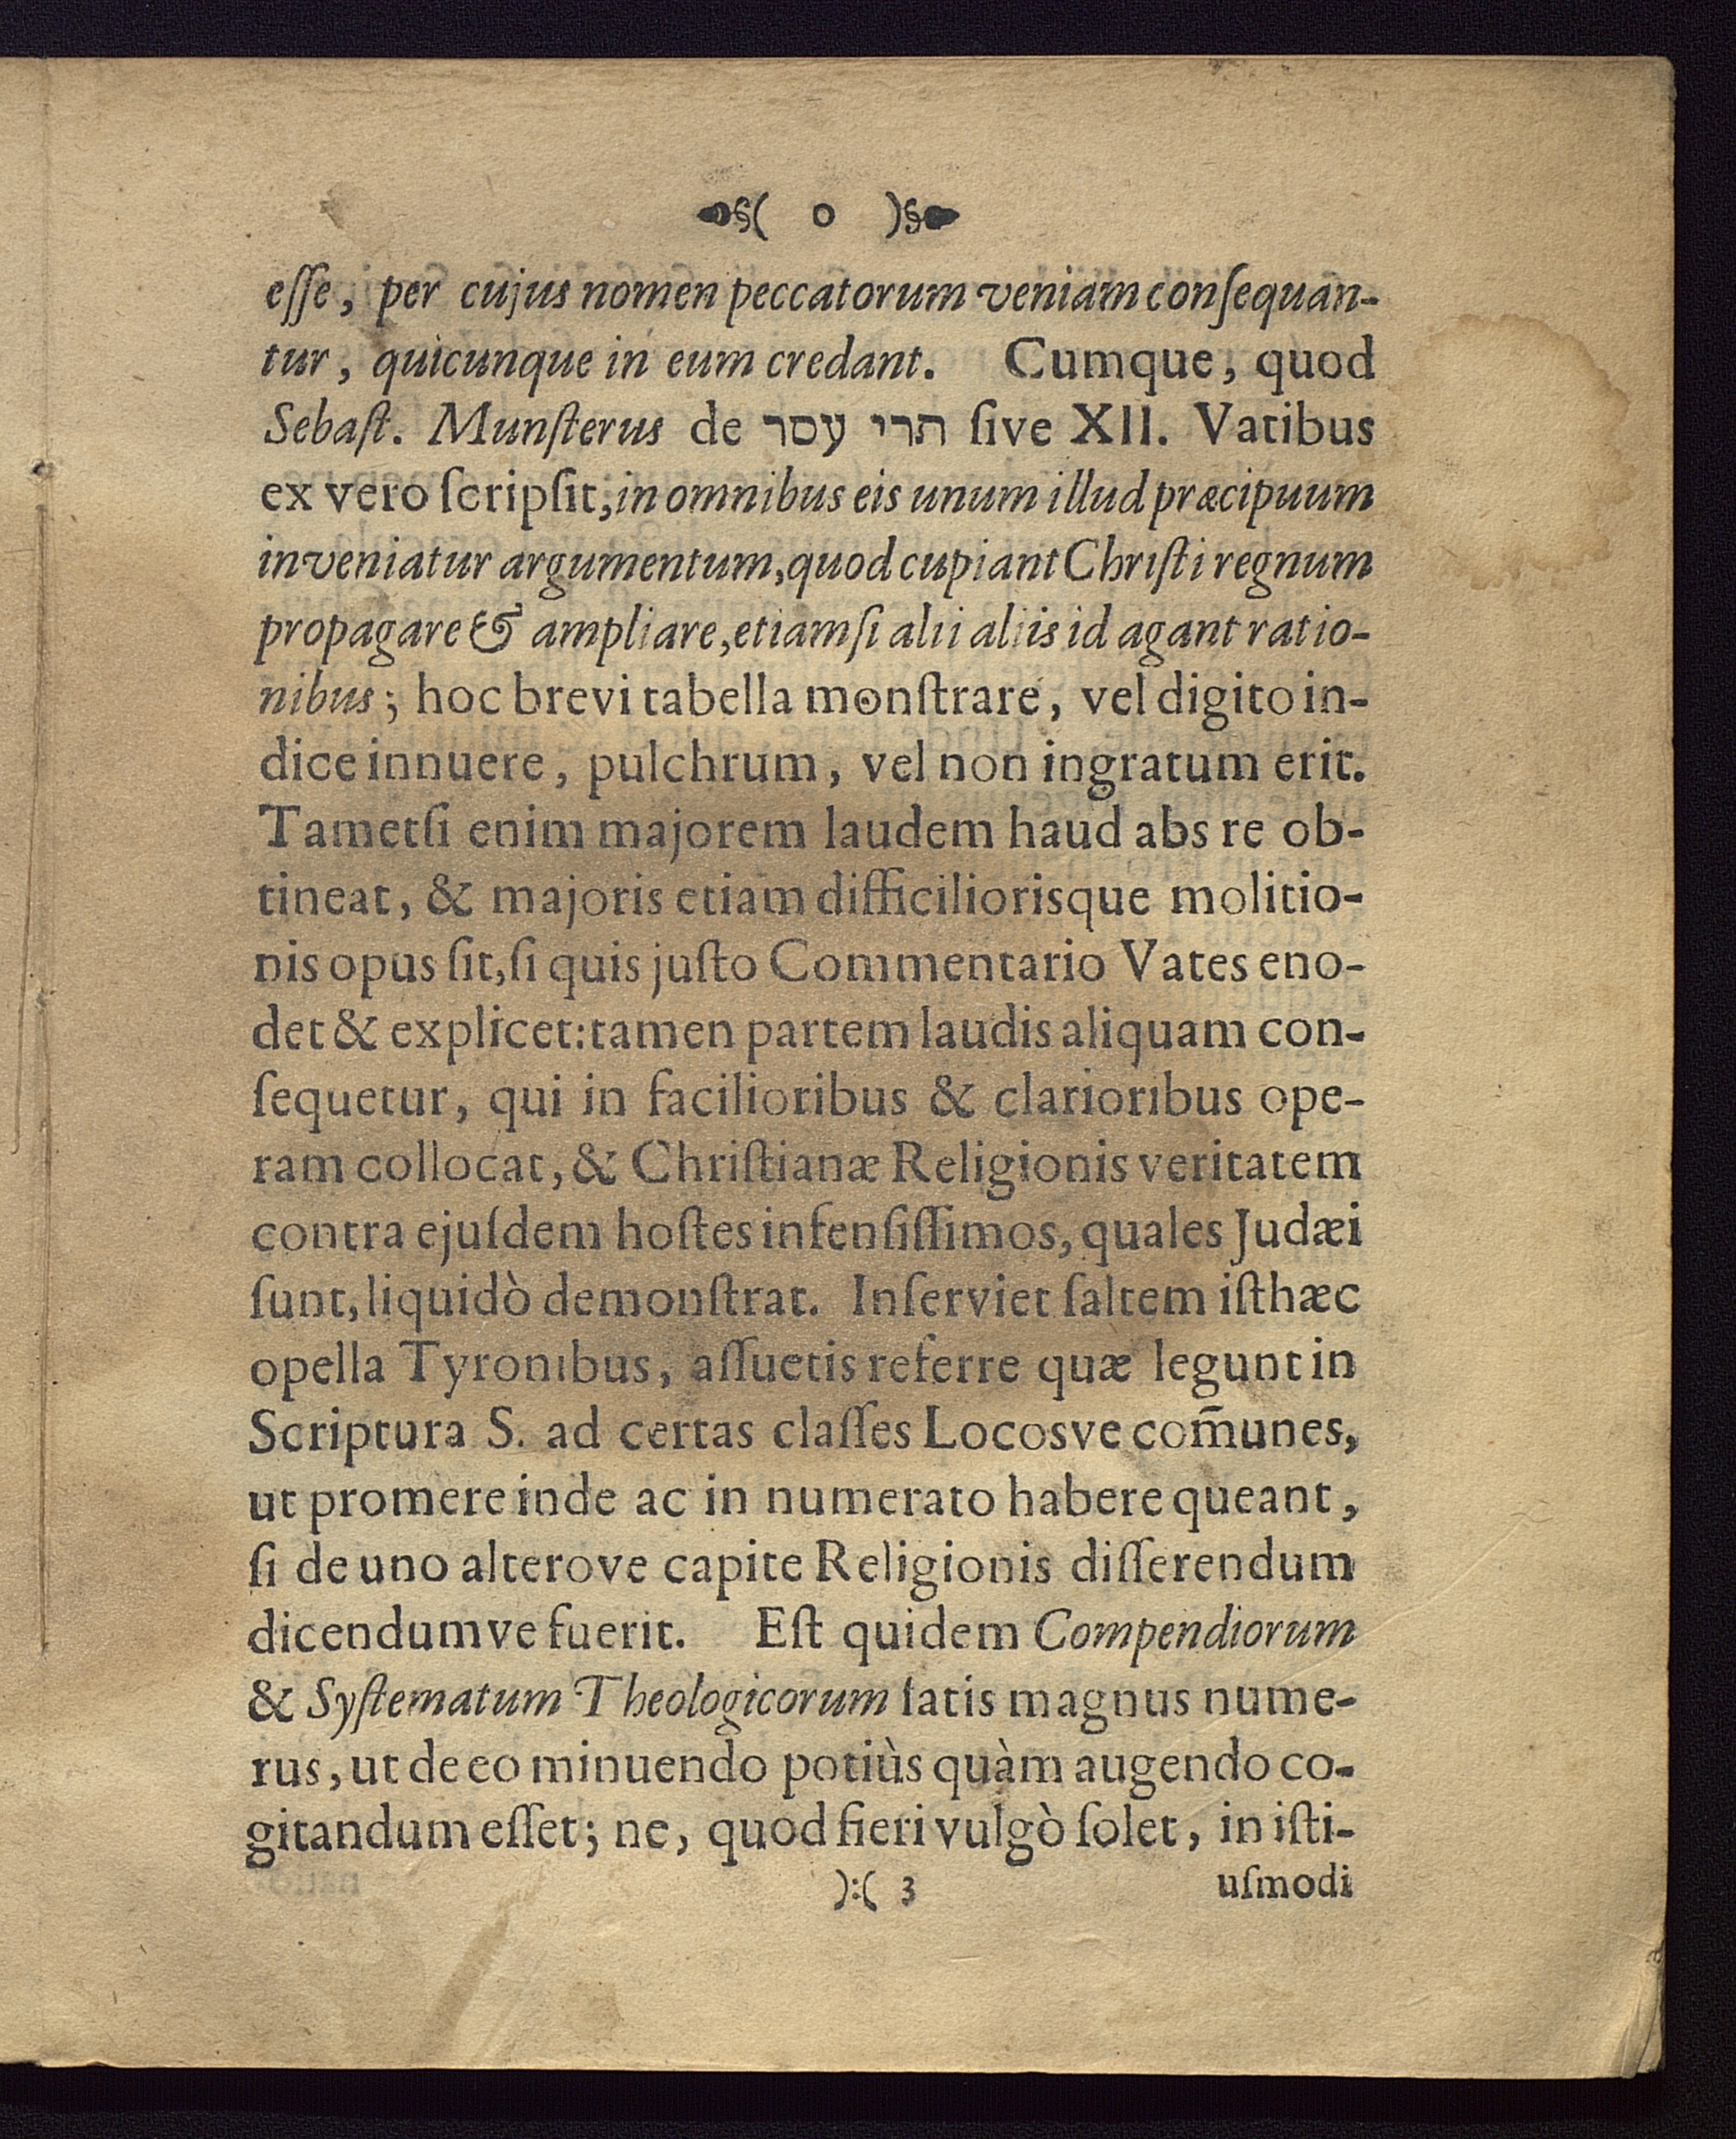 §( o )§
eſſe, per cujus nomen peccatorum veniam conſequan-
tur, quicunque in eum credant. Cumque, quod
Sebaſt. Munſterus de תרי עסר ſive XII. Vatibus
ex vero ſcripſit, in omnibus eis unum illud præcipuum
inveniatur argumentum, quod cupiant Chriſti regnum
propagare & ampliare, etiamſi alii aliis id agant ratio-
nibus; hoc brevi tabella monſtrare, vel digito in-
dice innuere, pulchrum, vel non ingratum erit.
Tametſi enim majorem laudem haud abs re ob-
tineat, & majoris etiam difficiliorisque molitio-
nis opus ſit, ſi quis juſto Commentario Vates eno-
det & explicet: tamen partem laudis aliquam con-
ſequetur, qui in facilioribus & clarioribus ope-
ram collocat, & Chriſtianæ Religionis veritatem
contra ejuſdem hoſtes infenſiſſimos, quales Judæi
ſunt, liquidò demonſtrat. Inſerviet ſaltem iſthæc
opella Tyronibus, aſſuetis referre quæ legunt in
Scriptura S. ad certas claſſes Locosve com̃unes,
ut promere inde ac in numerato habere queant,
ſi de uno alterove capite Religionis diſſerendum
dicendumve fuerit. Eſt quidem Compendiorum
& Syſtematum Theologicorum ſatis magnus nume-
rus, ut de eo minuendo potiùs quàm augendo co-
gitandum eſſet; ne, quod fieri vulgò ſolet, in iſti-
):( 3 uſmodi